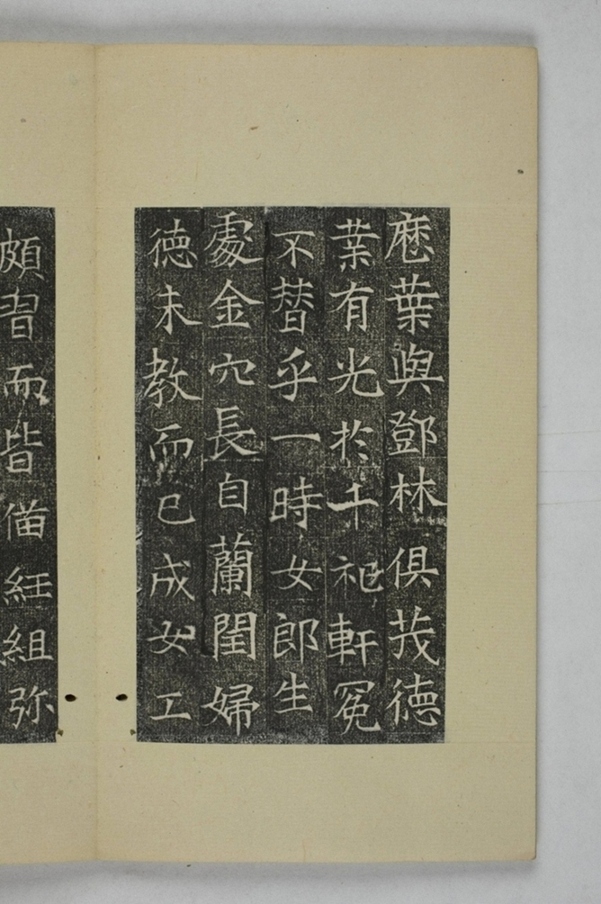 厯葉與鄧林俱茂德
業有光於千祀軒冕
不替乎一時女郎生
處金穴長自蘭閨婦
德未教而已成女工
頗習而皆俻紝組弥